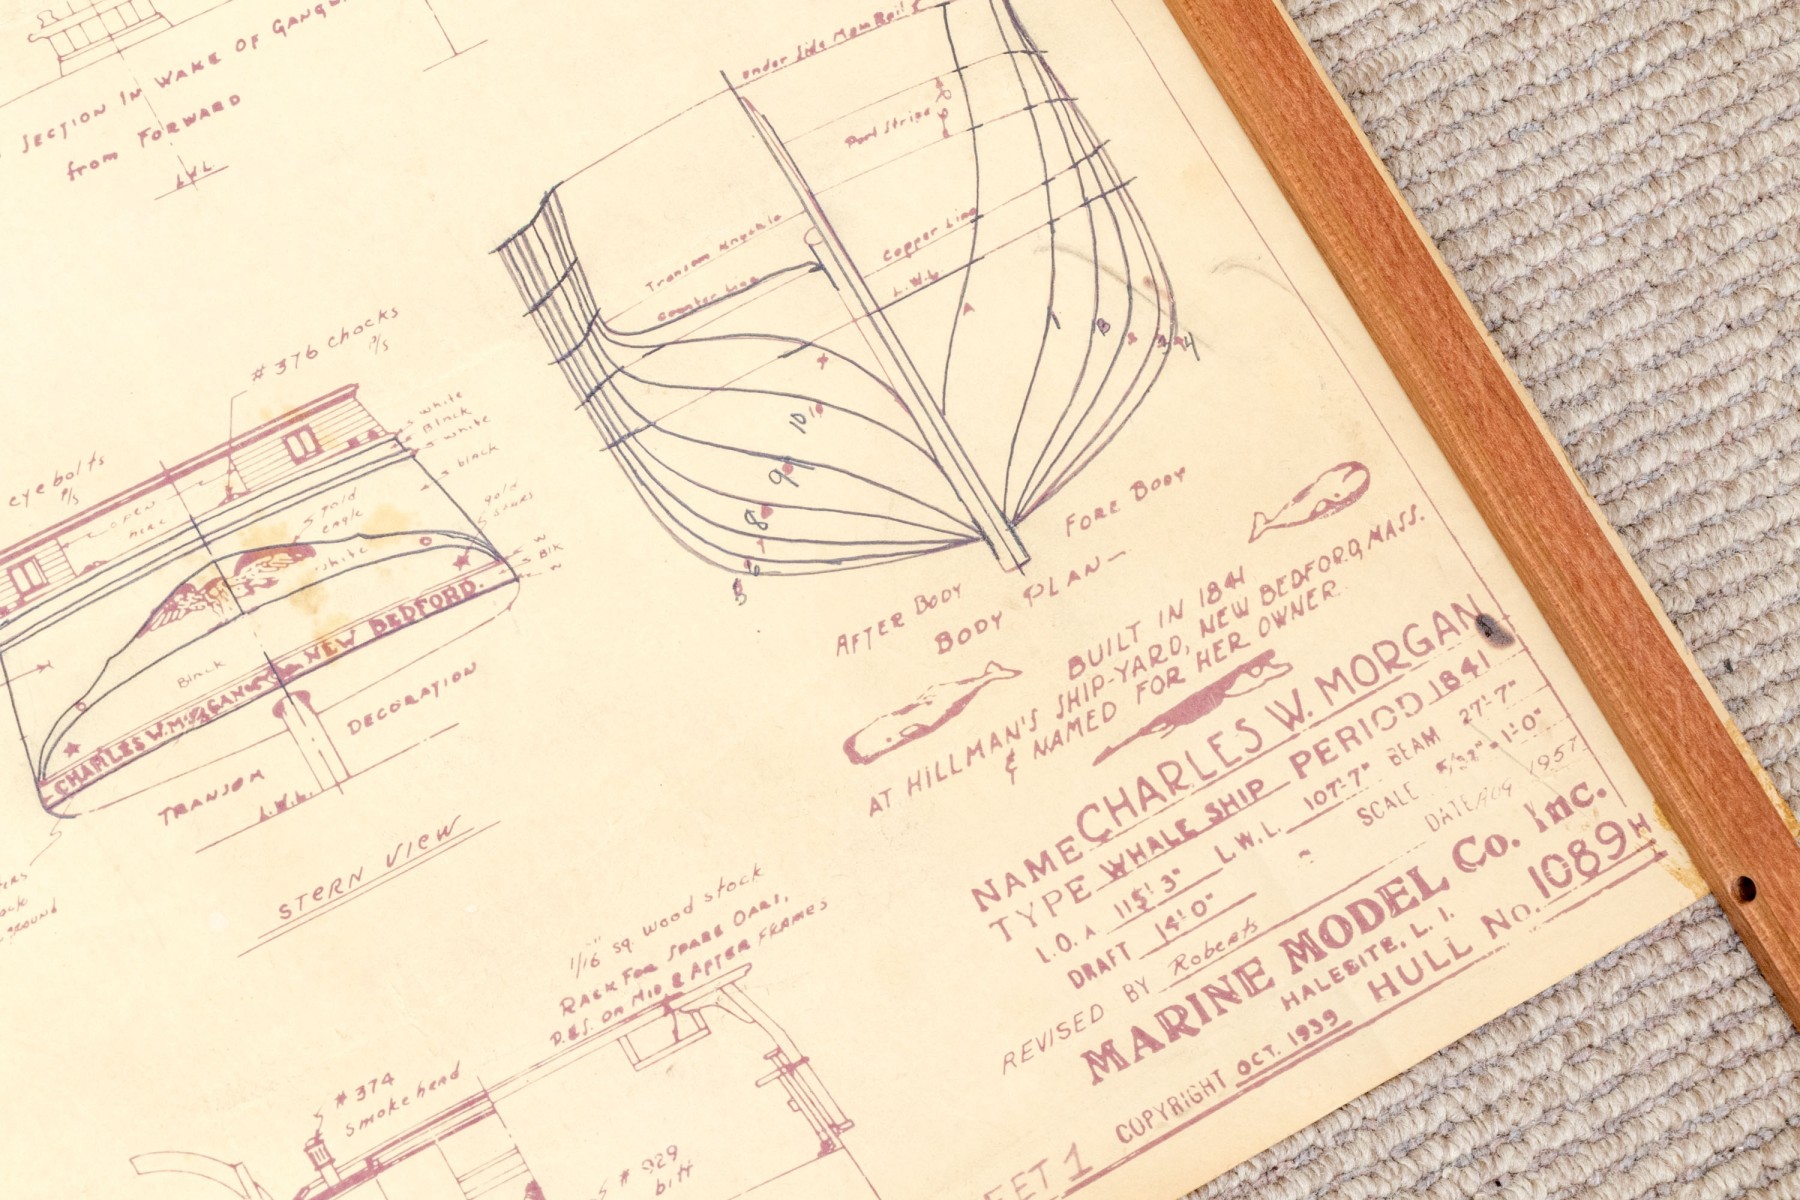 SECTION IN WAKE OF
from FORWARD
L.W.L.
under Side Main Rail
Port Strips
Transom Knuckle
Counter Line
Copper Line
L.W.L
A
1
B
2
3
4
10
9
8
7
6
5
AFTER BODY
FORE BODY
BODY PLAN
# 376 chocks
P/S
eyebolts
P/S
open
here
white
Black
white
black
gold
stars
gold
eagle
white
W
Blk
W
Black
CHARLES W. MORGAN
NEW BEDFORD.
TRANSOM
DECORATION
L.W.L.
STERN VIEW
1/16" sq. wood stock
RACK FOR SPARE OARS,
P.&S. ON MID & AFTER FRAMES
#374
smoke head
# 929
bitt
BUILT IN 1841
AT HILLMAN'S SHIP-YARD, NEW BEDFORD, MASS.
& NAMED FOR HER OWNER.
NAME CHARLES W. MORGAN
TYPE WHALE SHIP PERIOD 1841
L.O.A 115' 3" L.W.L. 107'-7" BEAM 27'-7"
DRAFT 14'0" SCALE 5/32" = 1'-0"
REVISED BY Roberts DATE AUG 1957
MARINE MODEL Co. Inc.
HALESITE, L. I.
COPYRIGHT OCT. 1939 HULL NO. 1089H
EET 1